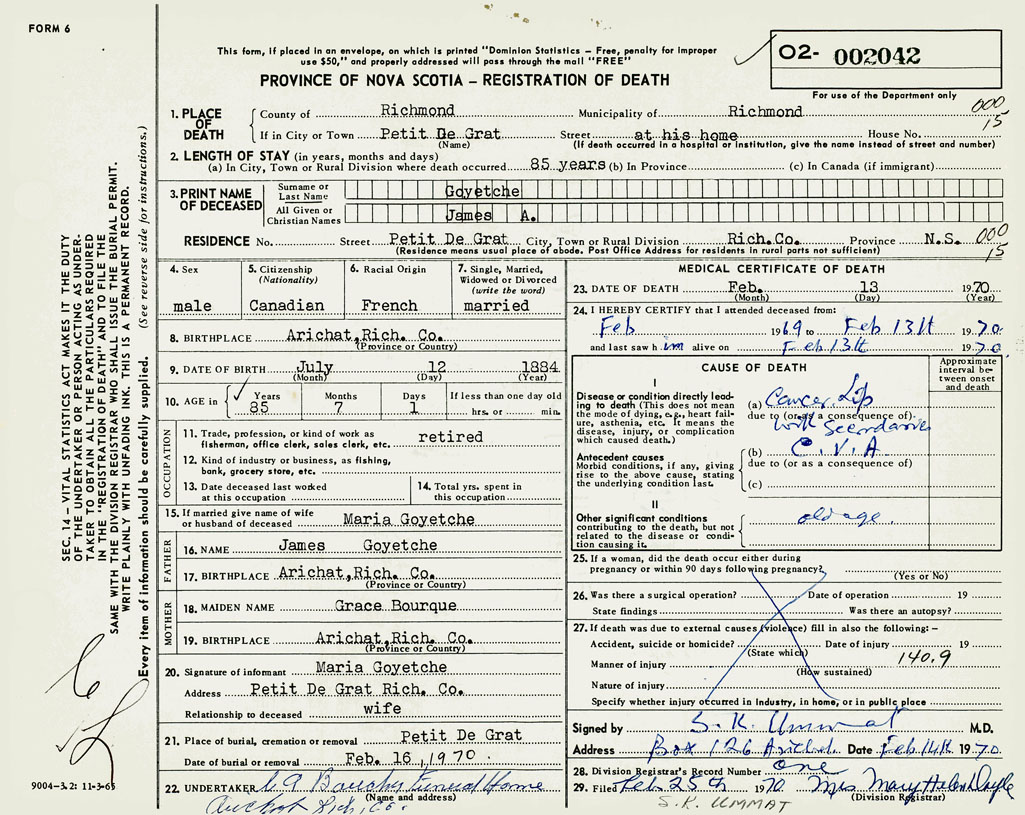 FORM 6
This form, if placed in an envelope, on which is printed "Dominion Statistics – Free, penalty for improper
use $50," and properly addressed will pass through the mail "FREE"
PROVINCE OF NOVA SCOTIA – REGISTRATION OF DEATH
O2- 002042
For use of the Department only
000
15
1. PLACE OF DEATH
County of Richmond Municipality of Richmond
If in City or Town Petit De Grat Street at his home House No.
(Name) (If death occurred in a hospital or institution, give the name instead of street and number)
2. LENGTH OF STAY (in years, months and days)
(a) In City, Town or Rural Division where death occurred 85 years (b) In Province (c) In Canada (if immigrant)
3. PRINT NAME OF DECEASED
Surname or Last Name Goyetche
All Given or Christian Names James A.
RESIDENCE No. Street Petit De Grat City, Town or Rural Division Rich.Co. Province N.S. 000
15
(Residence means usual place of abode. Post Office Address for residents in rural parts not sufficient)
4. Sex
male
5. Citizenship
(Nationality)
Canadian
6. Racial Origin
French
7. Single, Married,
Widowed or Divorced
(write the word)
married
8. BIRTHPLACE Arichat,Rich. Co.
(Province or Country)
9. DATE OF BIRTH July 12 1884
(Month) (Day) (Year)
10. AGE in Years Months Days If less than one day old
85 7 1 hrs. or min.
OCCUPATION
11. Trade, profession, or kind of work as
fisherman, office clerk, sales clerk, etc. retired
12. Kind of industry or business, as fishing,
bank, grocery store, etc.
13. Date deceased last worked
at this occupation
14. Total yrs. spent in
this occupation
15. If married give name of wife
or husband of deceased Maria Goyetche
FATHER
16. NAME James Goyetche
17. BIRTHPLACE Arichat,Rich. Co.
(Province or Country)
MOTHER
18. MAIDEN NAME Grace Bourque
19. BIRTHPLACE Arichat,Rich. Co.
(Province or Country)
20. Signature of informant Maria Goyetche
Address Petit De Grat Rich. Co.
Relationship to deceased wife
21. Place of burial, cremation or removal Petit De Grat
Date of burial or removal Feb. 16,1970.
22. UNDERTAKER Funeral Home
(Name and address)
MEDICAL CERTIFICATE OF DEATH
23. DATE OF DEATH Feb. 13 1970
(Month) (Day) (Year)
24. I HEREBY CERTIFY that I attended deceased from:
Feb 1969 to Feb 13th 1970.
and last saw him alive on Feb 13th 1970.
CAUSE OF DEATH
Approximate
interval be-
tween onset
and death
I
Disease or condition directly lead-
ing to death (This does not mean
the mode of dying, e.g., heart fail-
ure, asthenia, etc. It means the
disease, injury, or complication
which caused death.)
(a) Cancer Lip
due to (or as a consequence of)
with Secondaries
Antecedent causes
Morbid conditions, if any, giving
rise to the above cause, stating
the underlying condition last.
(b) C.V.A
due to (or as a consequence of)
(c)
II
Other significant conditions
contributing to the death, but not
related to the disease or condi-
tion causing it.
old age
25. If a woman, did the death occur either during
pregnancy or within 90 days following pregnancy?
(Yes or No)
26. Was there a surgical operation? Date of operation 19
State findings Was there an autopsy?
27. If death was due to external causes (violence) fill in also the following:–
Accident, suicide or homicide? Date of injury 19
(State which)
Manner of injury 140.9
(How sustained)
Nature of injury
Specify whether injury occurred in industry, in home, or in public place
Signed by S. K. Ummat M.D.
Address Box 126 Arichat Date Feb 14th 1970.
28. Division Registrar's Record Number one
29. Filed Feb 25th 1970. Mrs Mary Helen Doyle
(Division Registrar)
S. K. UMMAT
SEC. 14 – VITAL STATISTICS ACT MAKES IT THE DUTY
OF THE UNDERTAKER OR PERSON ACTING AS UNDER-
TAKER TO OBTAIN ALL THE PARTICULARS REQUIRED
IN THE "REGISTRATION OF DEATH" AND TO FILE THE
SAME WITH THE DIVISION REGISTRAR WHO SHALL ISSUE THE BURIAL PERMIT.
WRITE PLAINLY WITH UNFADING INK. THIS IS A PERMANENT RECORD.
Every item of information should be carefully supplied. (See reverse side for instructions.)
9004-3.2: 11-3-65